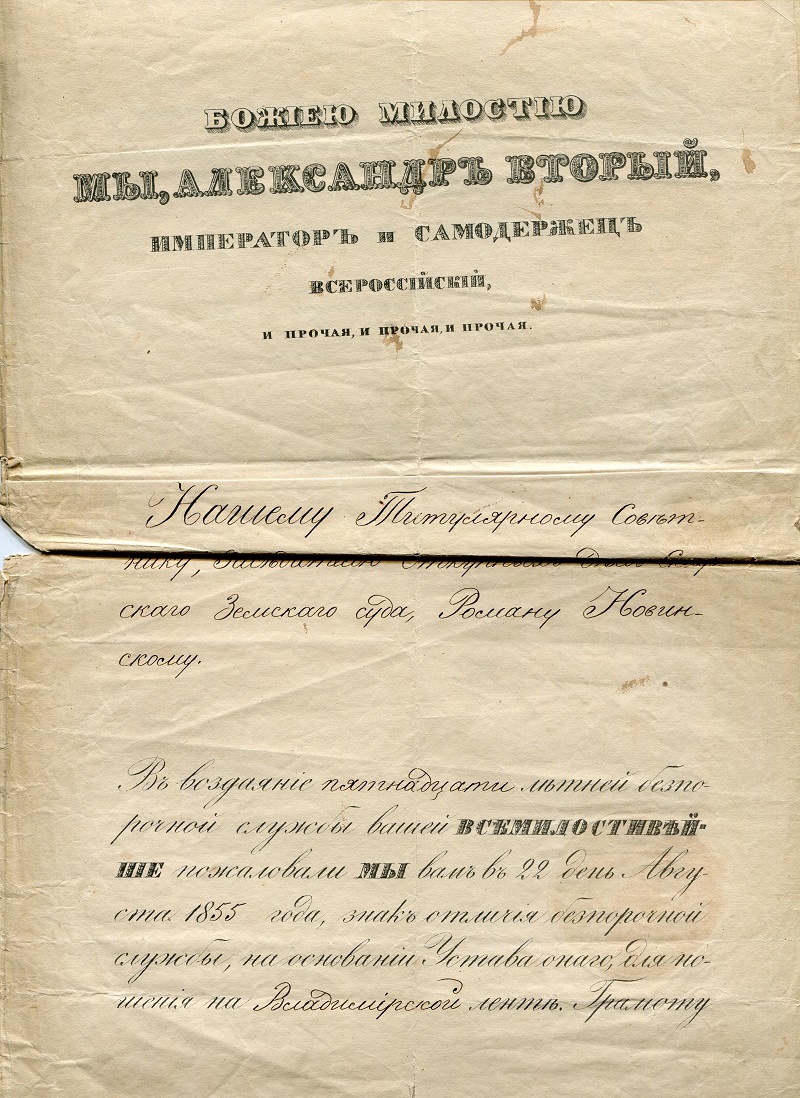 БОЖІЕЮ МИЛОСТІЮ
МЫ, АЛЕКСАНДРЪ ВТОРЫЙ,
ИМПЕРАТОРЪ и САМОДЕРЖЕЦЪ
ВСЕРОССІЙСКІЙ,
И ПРОЧАЯ, И ПРОЧАЯ, И ПРОЧАЯ.
Нашему Титулярному Совѣт-
нику,
скаго Земскаго суда, Роману Новин-
скому.
Въ воздаяніе пятнадцати лѣтней безпо-
рочной службы вашей ВСЕМИЛОСТИВѢЙ-
ШЕ пожаловали МЫ вамъ въ 22 день Авгу-
ста 1855 года, знакъ отличія безпорочной
службы, на основаніи Устава онаго, для но-
шенія на Владимірской лентѣ. Грамоту